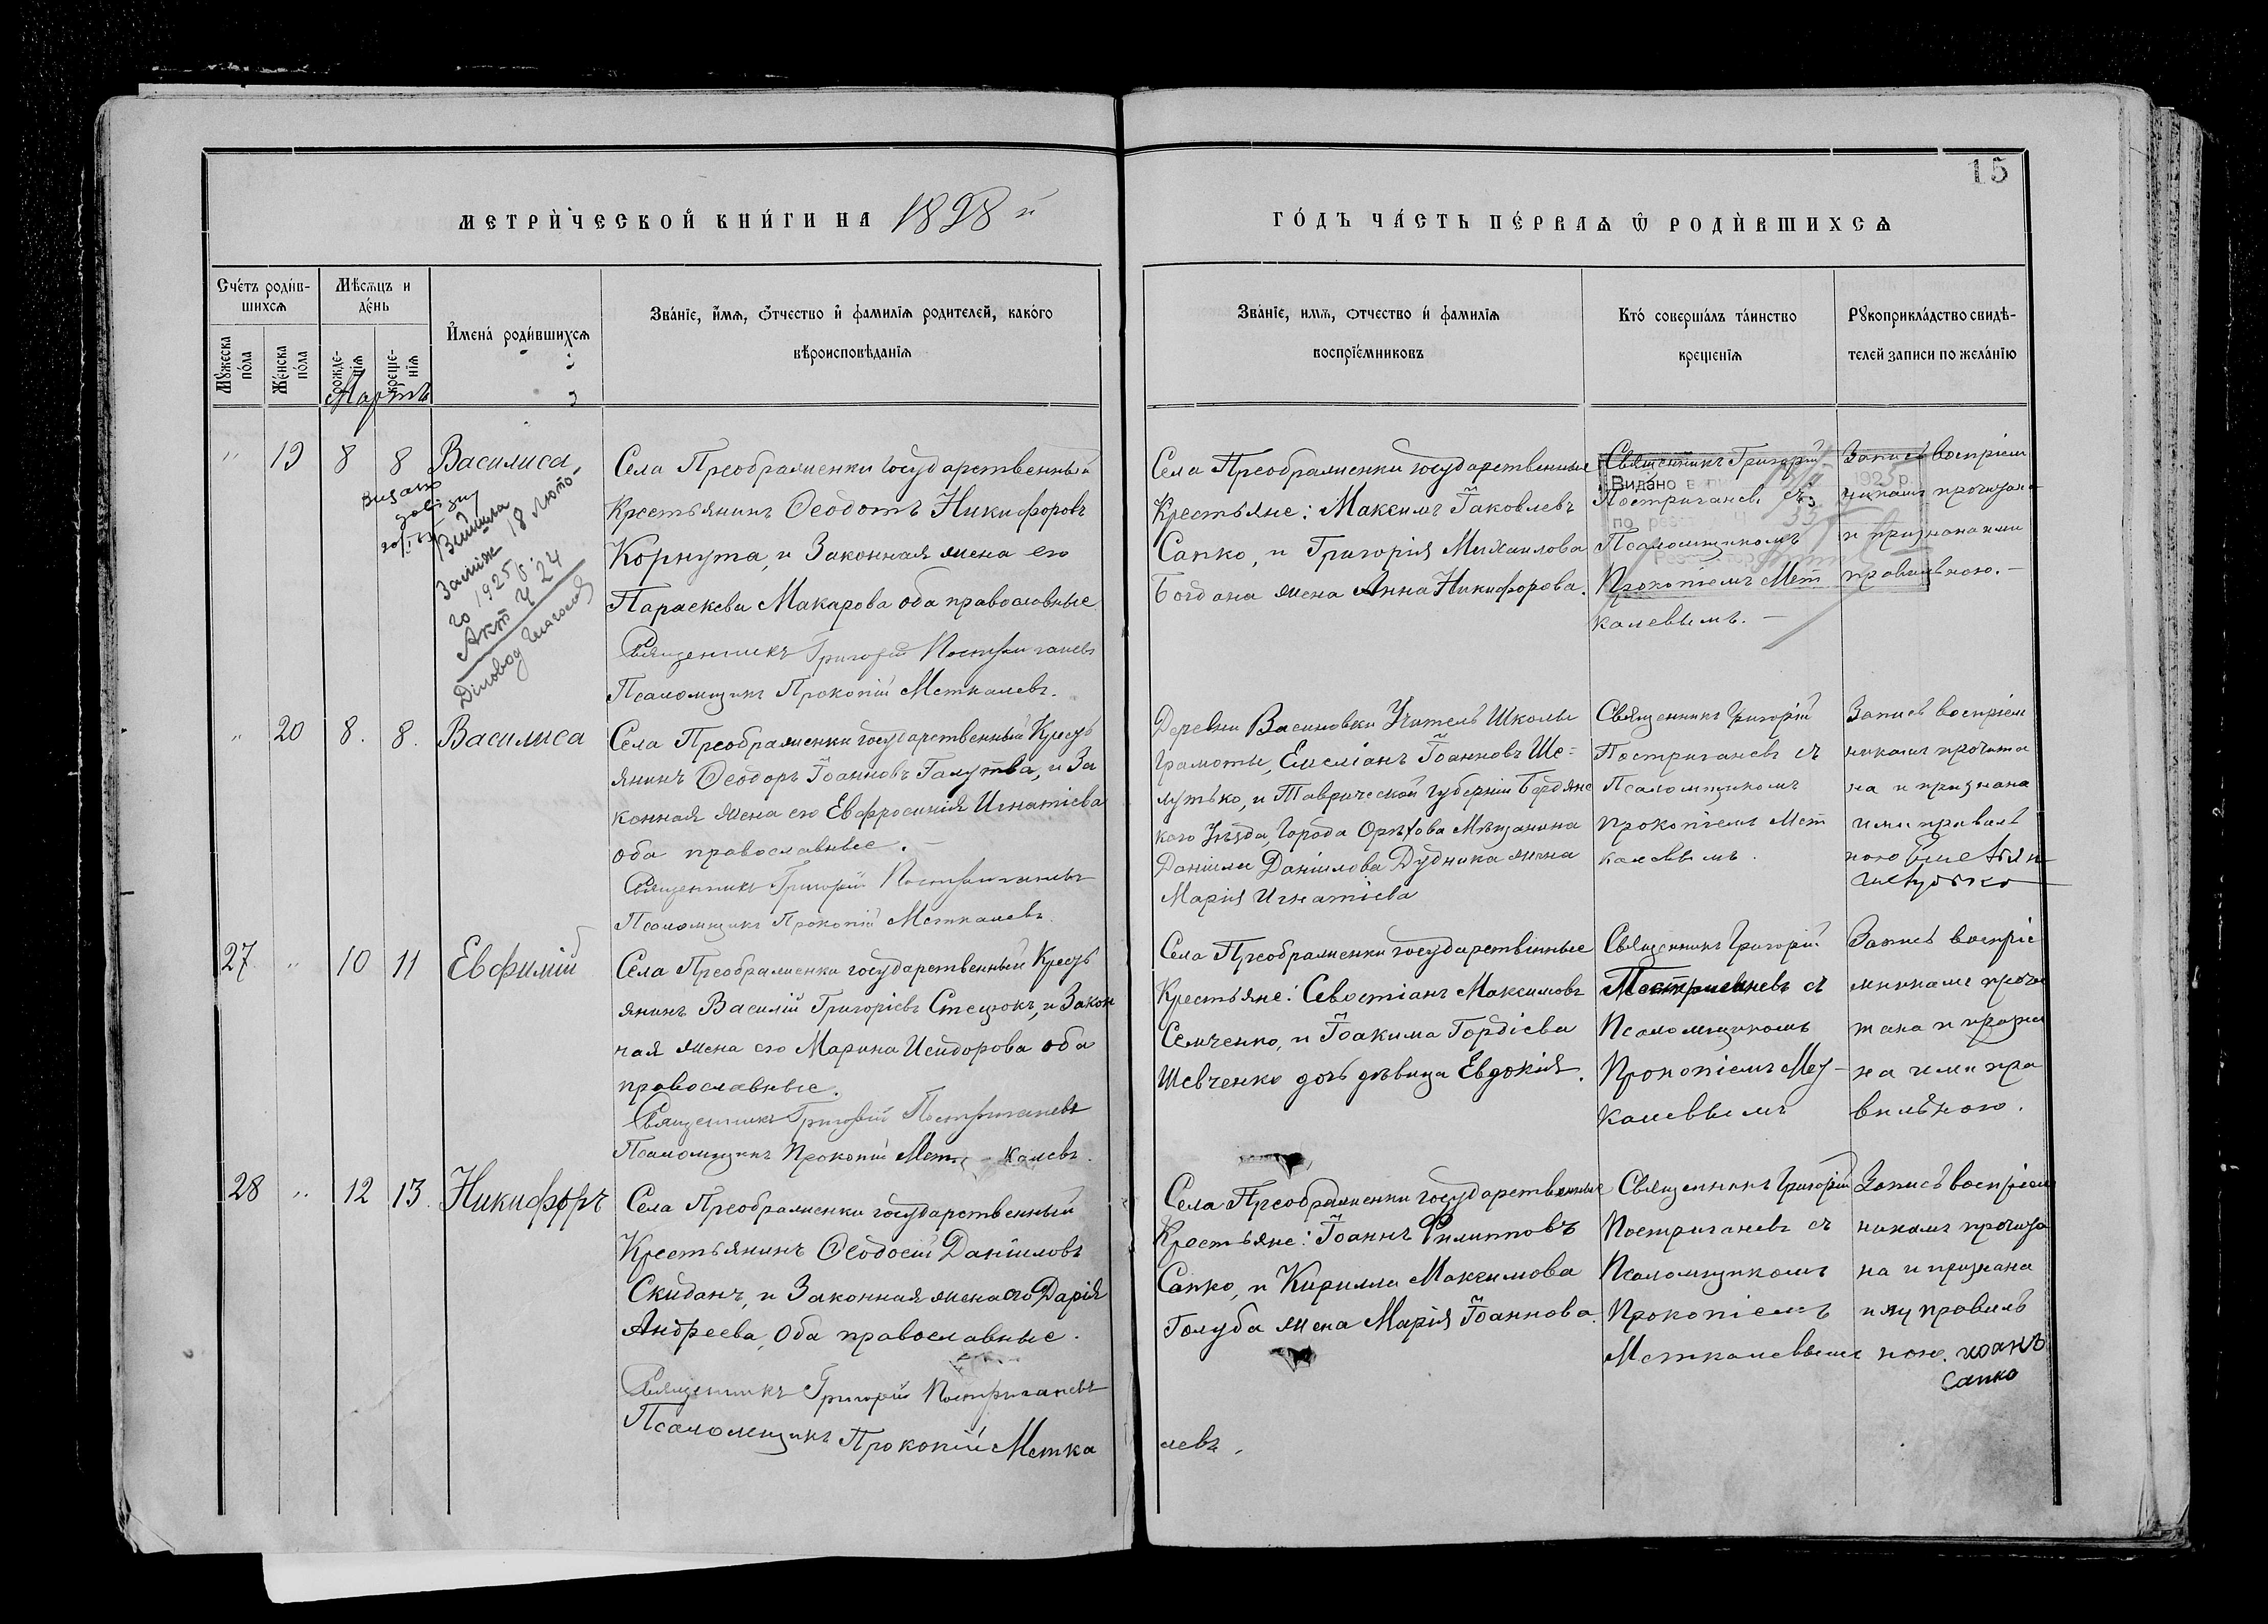 15
МЕТРИ́ЧЕСКОЙ КНИ́ГИ НА 1898 й
ГО́ДЪ ЧА́СТЬ ПЕ́РВАѦ Ѿ РОДИ́ВШИХСѦ
Сче́тъ роди́в-
шихсѧ
Мѣ́сѧцъ и
де́нь
И҆мена̀ роди́вшихсѧ
Зва́нїе, и҆́мѧ, ѻ҆́тчество и҆ фами́лїѧ роди́телей, како́го
вѣроисповѣ́данїѧ
Мꙋ́жеска
по́ла
Же́нска
по́ла
рожде-
нїѧ
креще-
нїѧ
Мартъ
Зва́нїе, имѧ, ѻтчество и҆ фами́лїѧ
воспрїе́мниковъ
Кто́ соверша́лъ та́инство
креще́нїѧ
Рꙋкоприкла́дство свидѣ́-
телей записи по жела́нїю
" 19 8 8 Василиса
Видано
20/I
Вийшла
Заміж 18 Люто-
го 1925 р.
Акт Ч 24
Діловод
Села Преображенки государственный
Крестьянинъ Ѳеодотъ Никифоровъ
Корнута, и Законная жена его
Параскева Макарова оба православные
Священникъ Григорій Постригачевъ
Псаломщикъ Прокопій Меткалевъ.
Села Преображенки государственные
Крестьяне: Максимъ Іаковлевъ
Сапко, и Григорія Михаилова
Богдана жена Анна Никифорова.
Священникъ Григорій
Постригачевъ съ
Псаломщикомъ
Прокопіемъ Мет
калевымъ. —
Видано
1925 р.
по
Запись воспріем
никамъ прочитан
и признана ими
правильною. —
" 20 8. 8. Василиса
Села Преображенки государственный Кресть
янинъ Ѳеодоръ Іоанновъ Галутва, и За
конная жена его Евфросинія Игнатіева
оба православные. —
Священникъ Григорій Постригачевъ
Псаломщикъ Прокопій Меткалевъ.
Деревни Васиновки Учитель Школы
Грамоты, Емеліанъ Іоанновъ Ше-
лутько, и Таврической губерніи Бердянс
каго Уѣзда, города Орѣхова Мѣщанина
Даніила Даніилова Дудника жена
Марія Игнатіева
Священникъ Григорій
Постригачевъ съ
Псаломщикомъ
Прокопіемъ Мет
калевымъ.
Запись воспріем
никами прочита
на и признана
ими правиль
ною
27 " 10 11 Евфимій
Села Преображенки государственный Кресть
янинъ Василій Григоріевъ Стецюкъ, и Закон
ная жена его Марина Исидорова оба
православные.
Священникъ Григорій Постригачевъ
Псаломщикъ Прокопій Мет - калевъ.
Села Преображенки государственные
Крестьяне: Севостіанъ Максимовъ
Семченко, и Іоакима Гордіева
Шевченко дочь дѣвица Евдокія.
Священникъ Григорій
Постригачевъ съ
Псаломщикомъ
Прокопіемъ Мет-
калевымъ
Запись воспріе
мникамъ прочи
тана и призна
на ими пра
вильною.
28 " 12 13. Никифоръ
Села Преображенки государственный
Крестьянинъ Ѳеодосій Даніиловъ
Скиданъ, и Законная жена его Дарія
Андреева, Оба православные.
Священникъ Григорій Постригачевъ
Псаломщикъ Прокопій Метка
левъ.
Села Преображенки государственные
Крестьяне: Іоаннъ Филипповъ
Сапко, и Кирилла Максимова
Голуба жена Марія Іоаннова.
Священникъ Григорій
Постригачевъ съ
Псаломщикомъ
Прокопіемъ
Меткалевымъ
Запись воспріем
никамъ прочита
на и признана
ими правиль
ною. иоанъ
Сапко